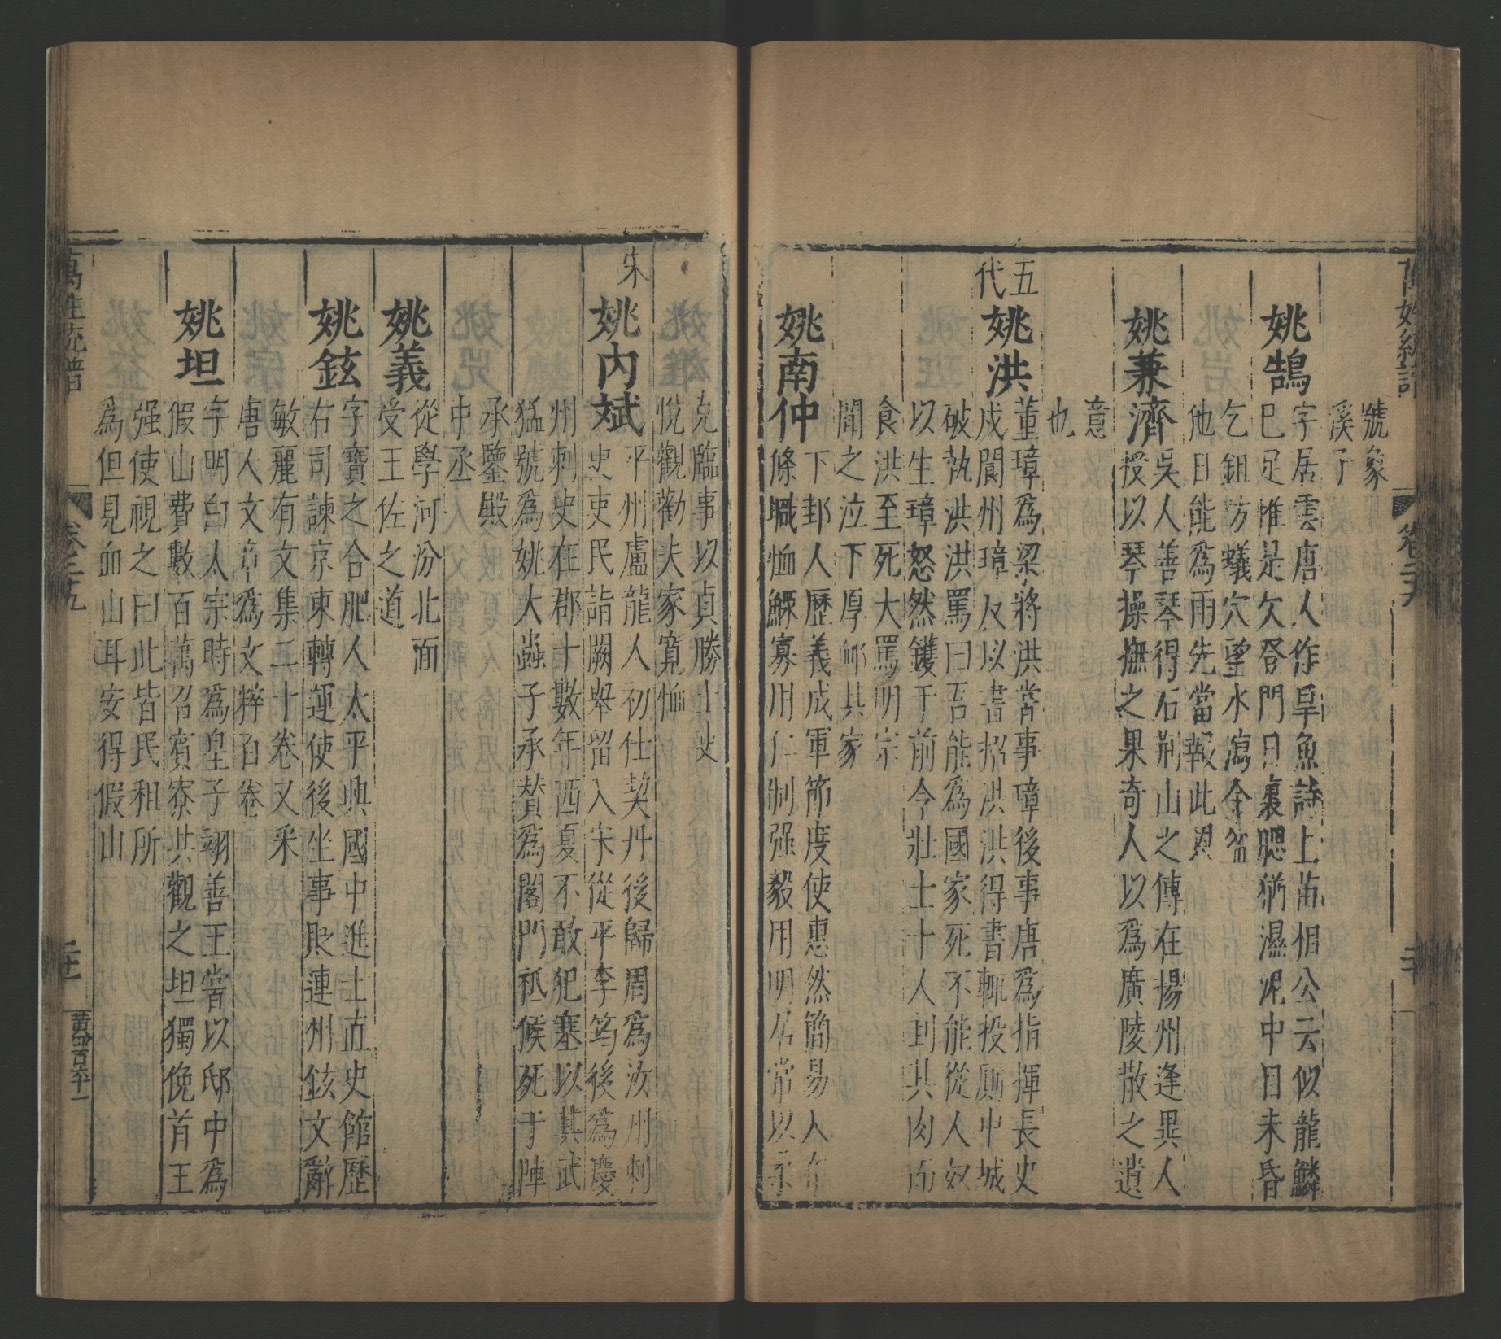 萬姓統譜 卷二九
號象
溪子
姚鵠
字居雲唐人作旱魚詩上苗相公云似龍鱗
巳足惟是欠登門日裹腮猶濕泥中日未昏
乞鉏防蟻穴望水瀉金盆
他日能為雨先當報此恩
姚兼濟
吳人善琴得石荆山之傳在揚州逢異人
授以琴操撫之果奇人以為廣陵散之遺
意
也
五代
姚洪
董璋為梁將洪常事璋後事唐為指揮長史
戍閬州璋反以書招洪洪得書輒投厠中城
破執洪洪罵曰吾能為國家死不能從人奴
以生璋怒然鑊于前令壯士十人刲其肉而
食洪至死大罵明宗
聞之泣下厚卹其家
姚南仲
下邽人歷義成軍節度使惠然簡易人布
條職恤鰥寡用仁制强毅用明居常以示
克臨事以貞勝士以
悅觀勸夫家寬恤
宋
姚內斌
平州盧龍人初仕契丹後歸周為汝州刺
史吏民詣闕舉留入宋從平李筠後為慶
州刺史在郡十數年西夏不敢犯塞以其武
猛號為姚大蟲子承贊為閤門祗候死于陣
承鑒殿
中丞
姚義
從學河汾北面
受王佐之道
姚鉉
字寶之合肥人太平興國中進士直史館歷
右司諫京東轉運使後坐事貶連州鉉文辭
敏麗有文集二十卷又采
唐人文章為文粹百卷
姚坦
字明白太宗時為皇子翊善王嘗以邸中為
假山費數百萬召賓寮共觀之坦獨俛首王
强使視之曰此皆民租所
為但見血山耳安得假山
萬姓統譜 卷二九